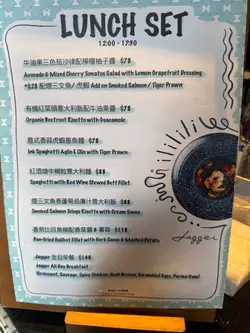 LUNCH SET
12:00 - 17:30
牛油果三色茄沙律配檸檬柚子醬 $78
Avocado & Mixed Cherry Tomatoo Salad with Lemon Grapefruit Dressing
+$28 配煙三文魚 / 虎蝦 Add on Smoked Salmon / Tiger Prawn
有機紅菜頭意大利飯配牛油果醬 $78
Organic Beetroot Risotto with Guacamole
意式香蒜虎蝦墨魚麵 $88
Ink Spaghetti Aglio E Olio with Tiger Prawn
紅酒燴牛柳粒意大利麵 $88
Spaghetti with Red Wine Stewed Beef Fillet
Smoked Salmon Risotto with Cream Sauce
香煎比目魚柳配香草醬 & 薯蓉 $118
Pan-Fried Halibut Fillet with Herb Sauce & Mashed Potato
Jagger 全日早餐 $148
Jagger All Day Breakfast
Sausage, Spicy Chicken, Hash Brown, Scrambled Eggs, Parma Ham)
Jagger